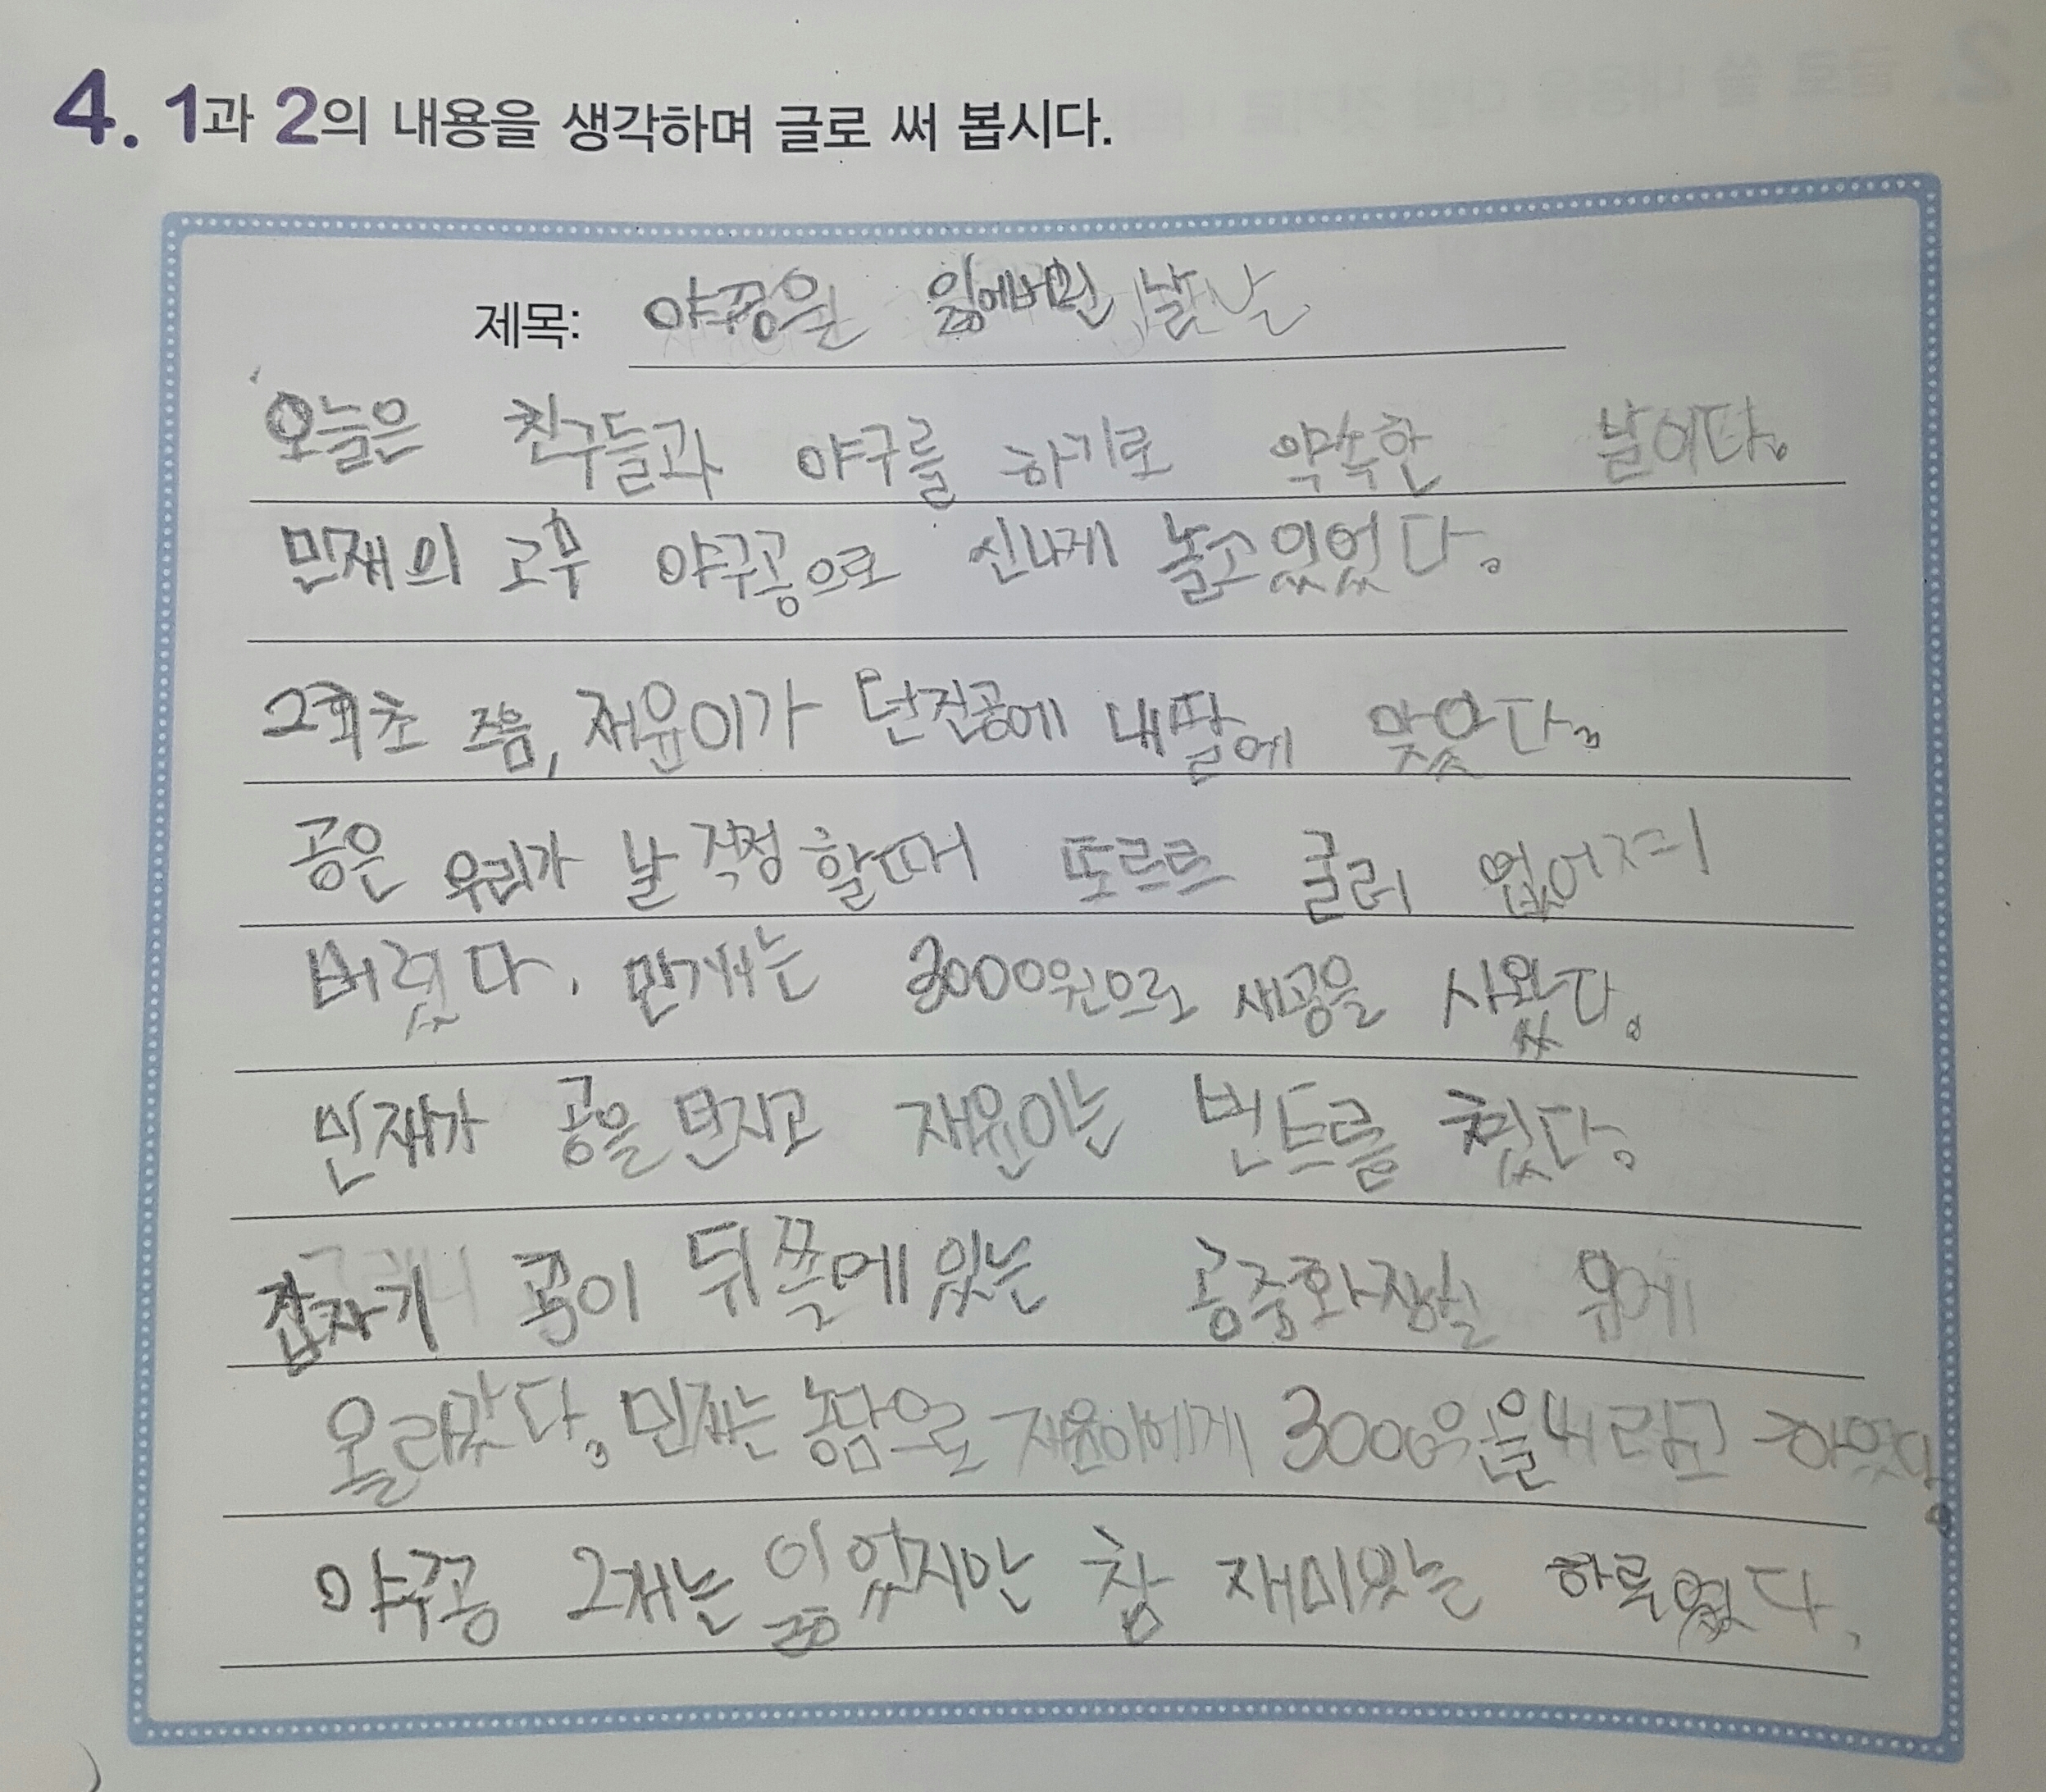 4. 1과 2의 내용을 생각하며 글로 써 봅시다.
제목: 야구공을 잃어버린 날
오늘은 친구들과 야구를 하기로 약속한 날이다.
민재의 고무 야구공으로 신나게 놀고있었다.
초 즈음, 재윤이가 던진공에 내팔에 맞았다.
공은 우리가 날 걱정 할때 또르르 굴러 없어져
버렸다. 민재는 3000원으로 새공을 사왔다.
민재가 공을 던지고 재윤이는 번트를 쳤다.
갑자기 공이 뒤쪽에 있는 공중화장실 위에
올라갔다. 민재는 농담으로 재윤이에게 3000원을 내라고 하였다.
야구공 2개는 잃었지만 참 재미있는 하루였다.